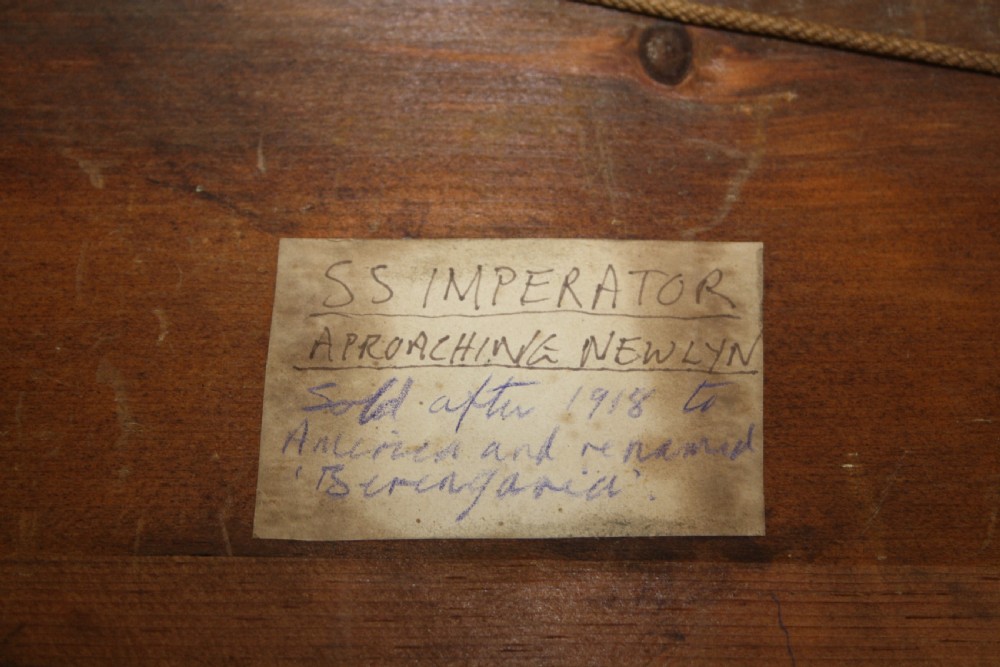 SS IMPERATOR
APROACHING NEWLYN
Sold after 1918 to
America and renamed
'Berengaria'.